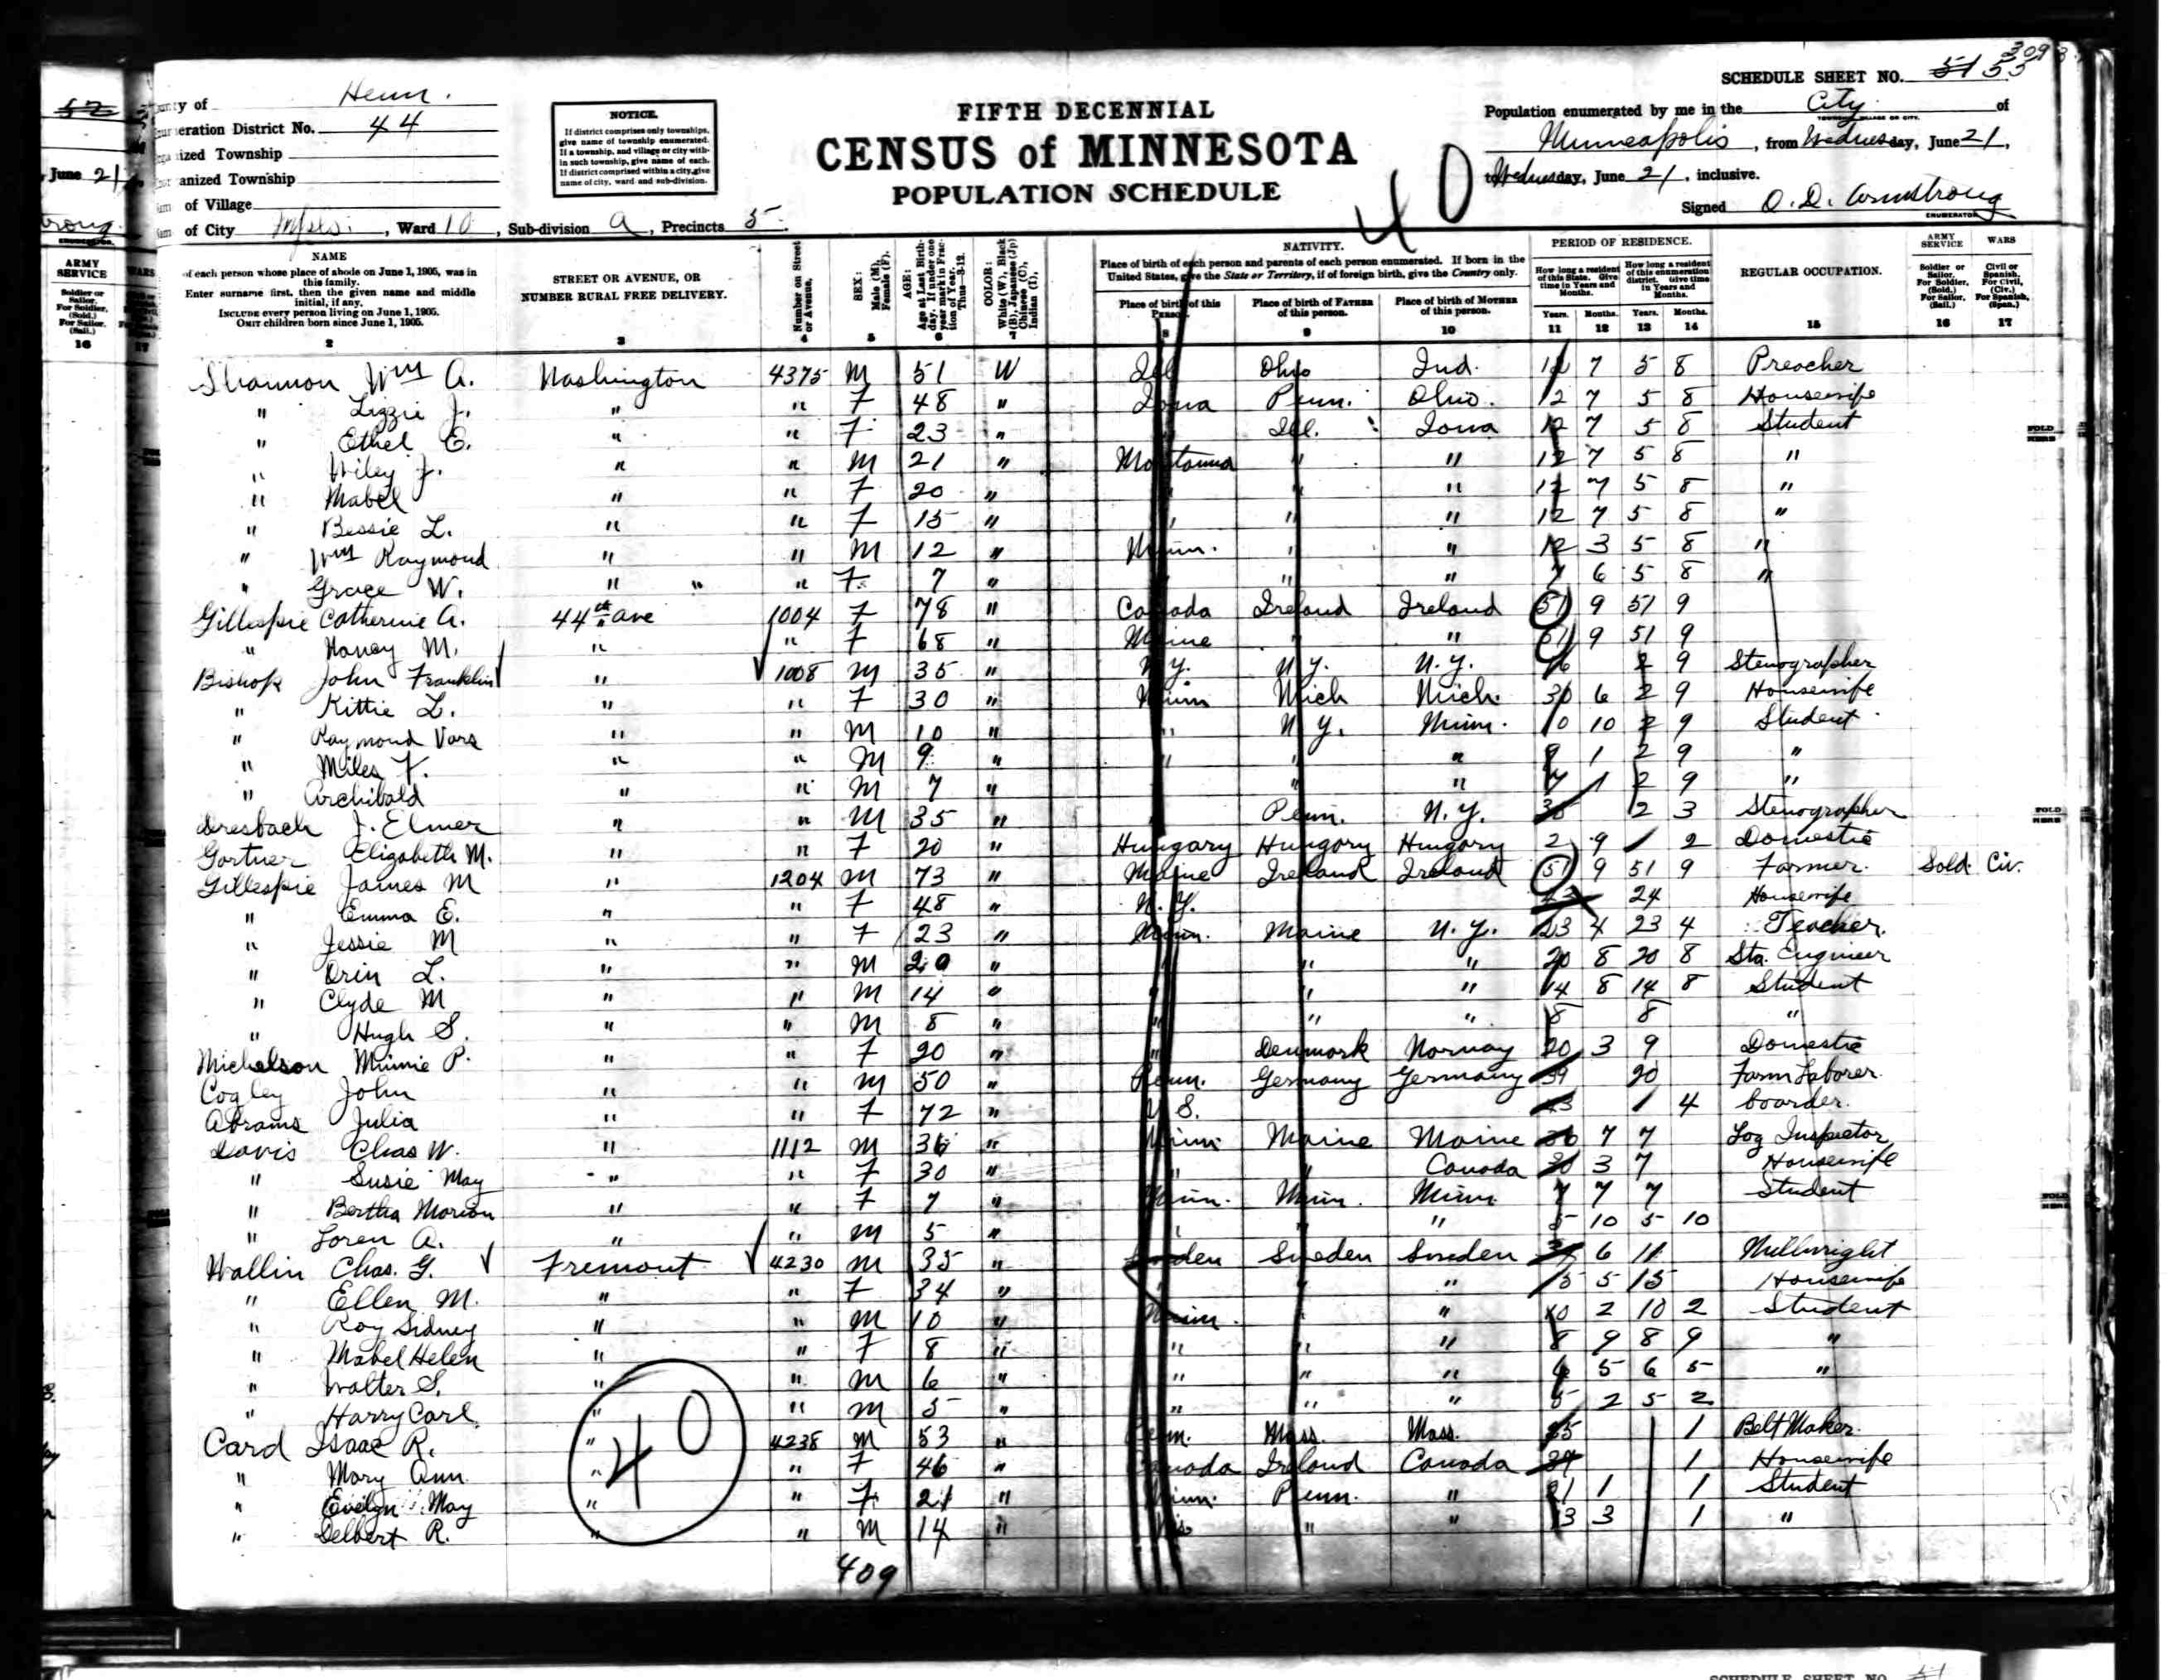 309
SCHEDULE SHEET NO. 51 53
County of Henn.
Enumeration District No. 44
Organized Township
Unorganized Township
of Village
of City Mpls. , Ward 10 , Sub-division A , Precincts 5.
NOTICE.
If district comprises only townships, give name of township enumerated. If a township, and village or city within such township, give name of each. If district comprised within a city, give name of city, ward and sub-division.
FIFTH DECENNIAL
CENSUS of MINNESOTA
POPULATION SCHEDULE
40
Population enumerated by me in the City of
TOWNSHIP, VILLAGE OR CITY.
Minneapolis , from Wednesday, June 21,
to Wednesday, June 21, inclusive.
Signed O. D. Armstrong
ENUMERATOR
NAME
of each person whose place of abode on June 1, 1905, was in this family.
Enter surname first, then the given name and middle initial, if any.
INCLUDE every person living on June 1, 1905.
OMIT children born since June 1, 1905.
2
STREET OR AVENUE, OR NUMBER RURAL FREE DELIVERY.
3
Number on Street or Avenue.
4
SEX: Male (M), Female (F).
5
AGE: Age at Last Birthday. If under one year mark in Fraction of Year. Thus—3-12.
6
COLOR: White (W), Black (B), Japanese (Jp) Chinese (C), Indian (I).
7
NATIVITY.
Place of birth of each person and parents of each person enumerated. If born in the United States, give the State or Territory, if of foreign birth, give the Country only.
Place of birth of this Person.
8
Place of birth of FATHER of this person.
9
Place of birth of MOTHER of this person.
10
PERIOD OF RESIDENCE.
How long a resident of this State. Give time in Years and Months.
How long a resident of this enumeration district. Give time in Years and Months.
Years. Months. Years. Months.
11 12 13 14
REGULAR OCCUPATION.
15
ARMY SERVICE
Soldier or Sailor. For Soldier, (Sold.) For Sailor, (Sail.)
16
WARS
Civil or Spanish. For Civil, (Civ.) For Spanish, (Span.)
17
Shannon Wm A. Washington 4375 M 51 W Ill Ohio Ind. 12 7 5 8 Preacher
" Lizzie J. " " F 48 " Iowa Penn. Ohio. 12 7 5 8 Housewife
" Ethel E. " " F 23 " " Ill. Iowa 12 7 5 8 Student
" Wiley J. " " M 21 " Montanna " " 12 7 5 8 "
" Mabel " " F 20 " " " " 12 7 5 8 "
" Bessie L. " " F 15 " " " " 12 7 5 8 "
" Wm Raymond " " M 12 " Minn. " " 12 3 5 8 "
" Grace W. " " " F 7 " " " " 7 6 5 8 "
Gillespie Catherine A. 44th Ave 1004 F 78 " Canada Ireland Ireland 51 9 51 9
" Nancy M. " " F 68 " Maine " " 51 9 51 9
Bishop John Franklin " 1008 M 35 " N.Y. N.Y. N.Y. 16 2 9 Stenographer
" Kittie L. " " F 30 " Minn Mich Mich. 30 6 2 9 Housewife
" Raymond Vars " " M 10 " " N.Y. Minn. 10 10 2 9 Student
" Miles F. " " M 9 " " " " 9 1 2 9 "
" Archibald " " M 7 " " " " 7 1 2 9 "
Dresbach J. Elmer " " M 35 " " Penn. N.Y. 35 2 3 Stenographer
Gortner Elizabeth M. " " F 20 " Hungary Hungary Hungary 2 9 / 2 Domestic
Gillespie James M " 1204 M 73 " Maine Ireland Ireland 51 9 51 9 Farmer. Sold. Civ.
" Emma E. " " F 48 " N.Y. 24 Housewife
" Jessie M " " F 23 " Minn. Maine N.Y. 23 4 23 4 Teacher.
" Orin L. " " M 20 " " " " 20 8 20 8 Sta. Engineer
" Clyde M " " M 14 " " " " 14 8 14 8 Student
" Hugh S. " " M 8 " " " " 8 8 "
Michelson Minnie P. " " F 20 " " Denmark Norway 20 3 9 Domestic
Cogley John " " M 50 " Penn. Germany Germany 39 20 Farm Laborer.
Abrams Julia " " F 72 " U.S. 43 1 4 boarder.
Davis Chas W. " 1112 M 36 " Minn Maine Maine 36 7 7 Log Inspector
" Susie May " " F 30 " " " Canada 30 3 7 Housewife
" Bertha Marion " " F 7 " Minn. Minn. Minn. 7 7 7 Student
" Loren A. " " M 5 " " " " 5 10 5 10
Wallin Chas. G. Fremont 4230 M 35 " Sweden Sweden Sweden 6 11 Millwright
" Ellen M. " " F 34 " " " " 15 5 15 Housewife
" Roy Sidney " " M 10 " Minn. " " 10 2 10 2 Student
" Mabel Helen " " F 8 " " " " 8 9 8 9 "
" Walter S. " " M 6 " " " " 6 5 6 5 "
" Harry Carl " " M 5 " " " " 5 2 5 2
Card Isaac R. " 4238 M 53 " Penn. Mass. Mass. 35 1 Belt Maker.
" Mary Ann. " " F 46 " Canada Ireland Canada 34 1 Housewife
" Evelyn May " " F 21 " Minn. Penn. " 21 1 1 Student
" Delbert R. " " M 14 " Wis " " 13 3 1 "
40
409